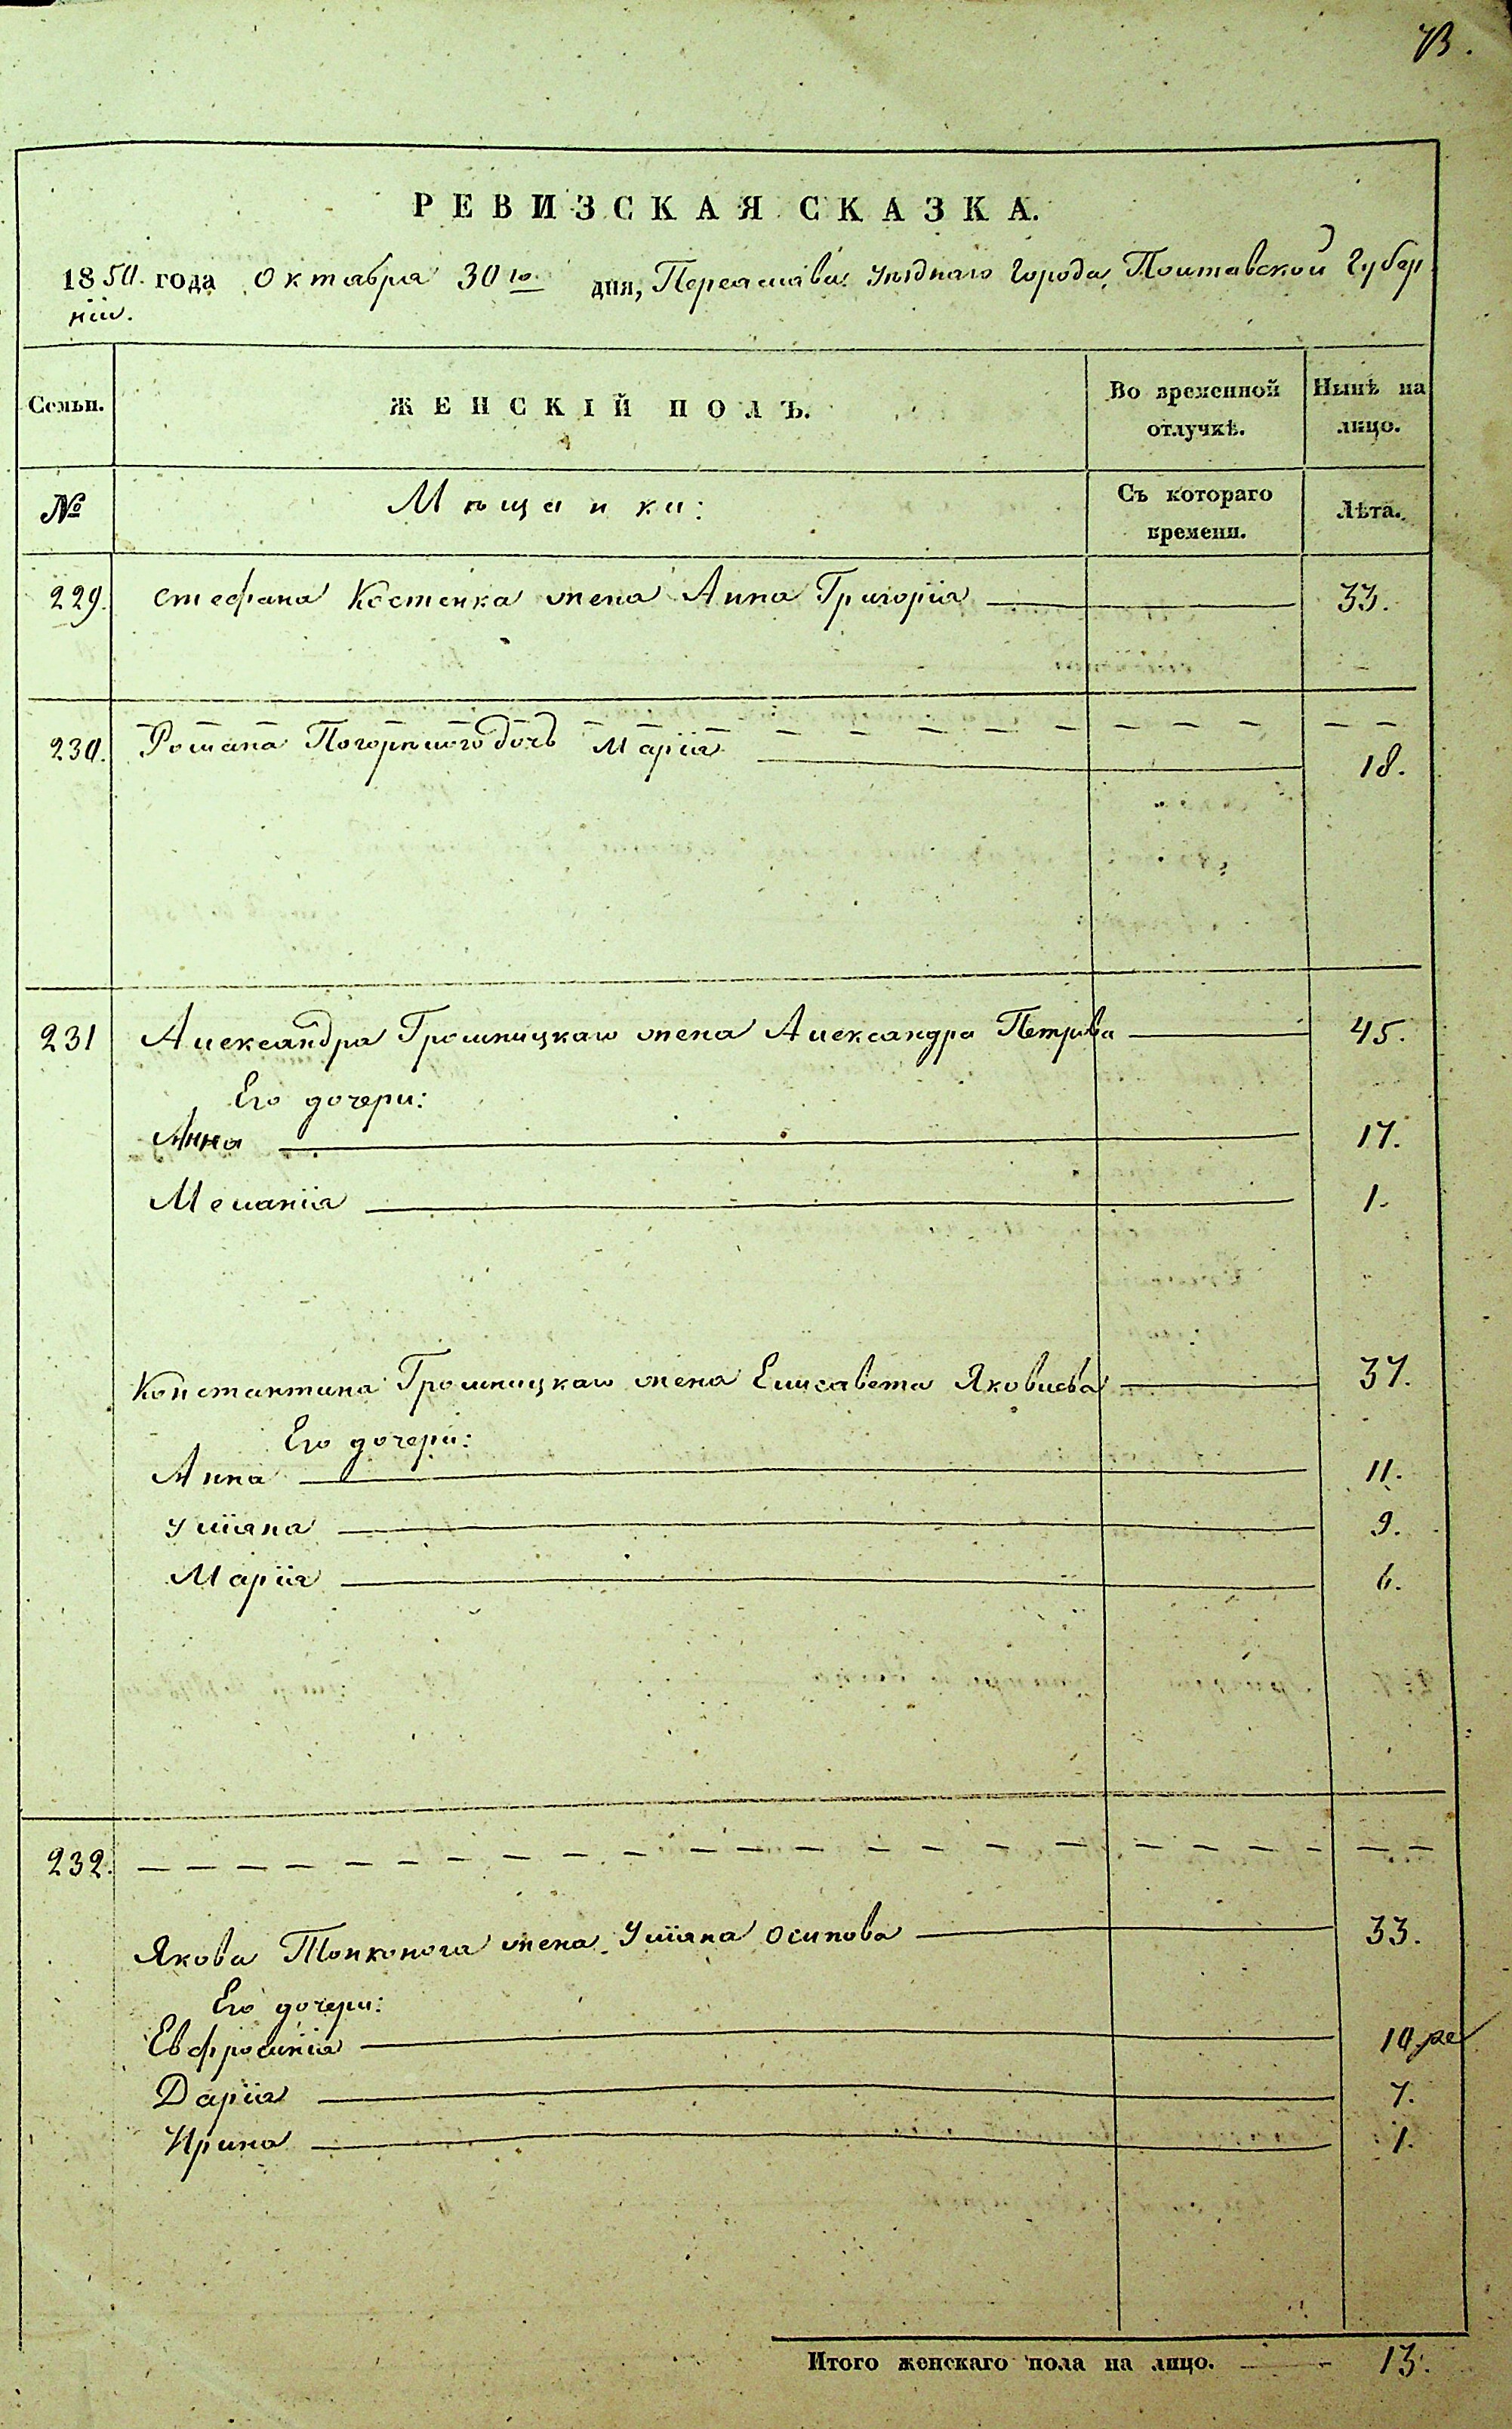 73.
РЕВИЗСКАЯ СКАЗКА.
1850. года Октабря 30го дня, Переяслава уѣзднаго города, Полтавской Губер
ніи.
Семьи. ЖЕНСКІЙ ПОЛЪ. Во временной отлучкѣ. Нынѣ на лицо.
№ Мѣщанки: Съ котораго времени. Лѣта.
229. Стефана Костенка жена Анна Григорія 33.
230. Романа Погорѣлого дочь Марія 18.
231 Александра Громницкаго жена Александра Петрова 45.
Его дочери:
Анна 17.
Меланія 1.
Константина Громницкаго жена Елисавета Яковлева 37.
Его дочери:
Анна 11.
Уліяна 9.
Марія 6.
232.
Якова Тонконога жена Уліяна Осипова 33.
Его дочери:
Евфросинія 10
Дарія 7.
Ирина 1.
Итого женскаго пола на лицо. 13.